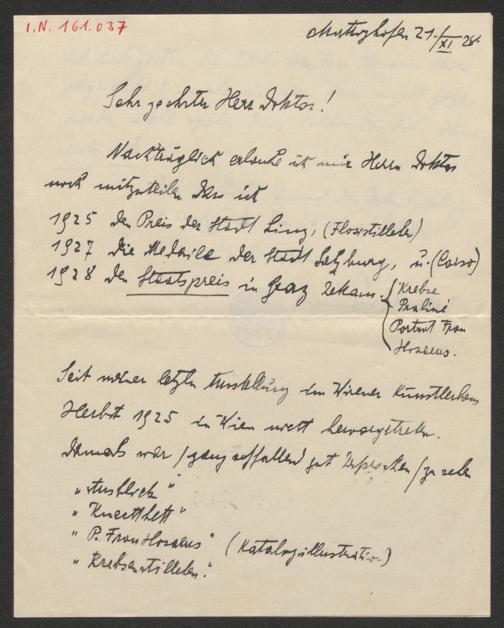 I.N. 161.037
Mattighofen 21./XI 28.
Sehr geehrter Herr Doktor!
Nachträglich erlaube ich mir Herrn Doktor
noch mitzuteilen dass ich
1925 den Preis der Stadt Linz, (Flowstilleben)
1927 die Medaille der Stadt Salzburg, u. (Corso)
1928 den Staatspreis in Graz bekam.
(Krebse
Praliné
Portrait Frau
Hosaeus.
Seit meiner letzten Ausstellung im Wiener Künstlerhaus
Herbst 1925 in Wien nicht hervorgetreten.
Damals war (ganz auffallend gut besprochen) zu sehen
„Ausblick"
"
"P. Frau Hosaeus" (Katalogillustration)
"Krebsenstilleben."